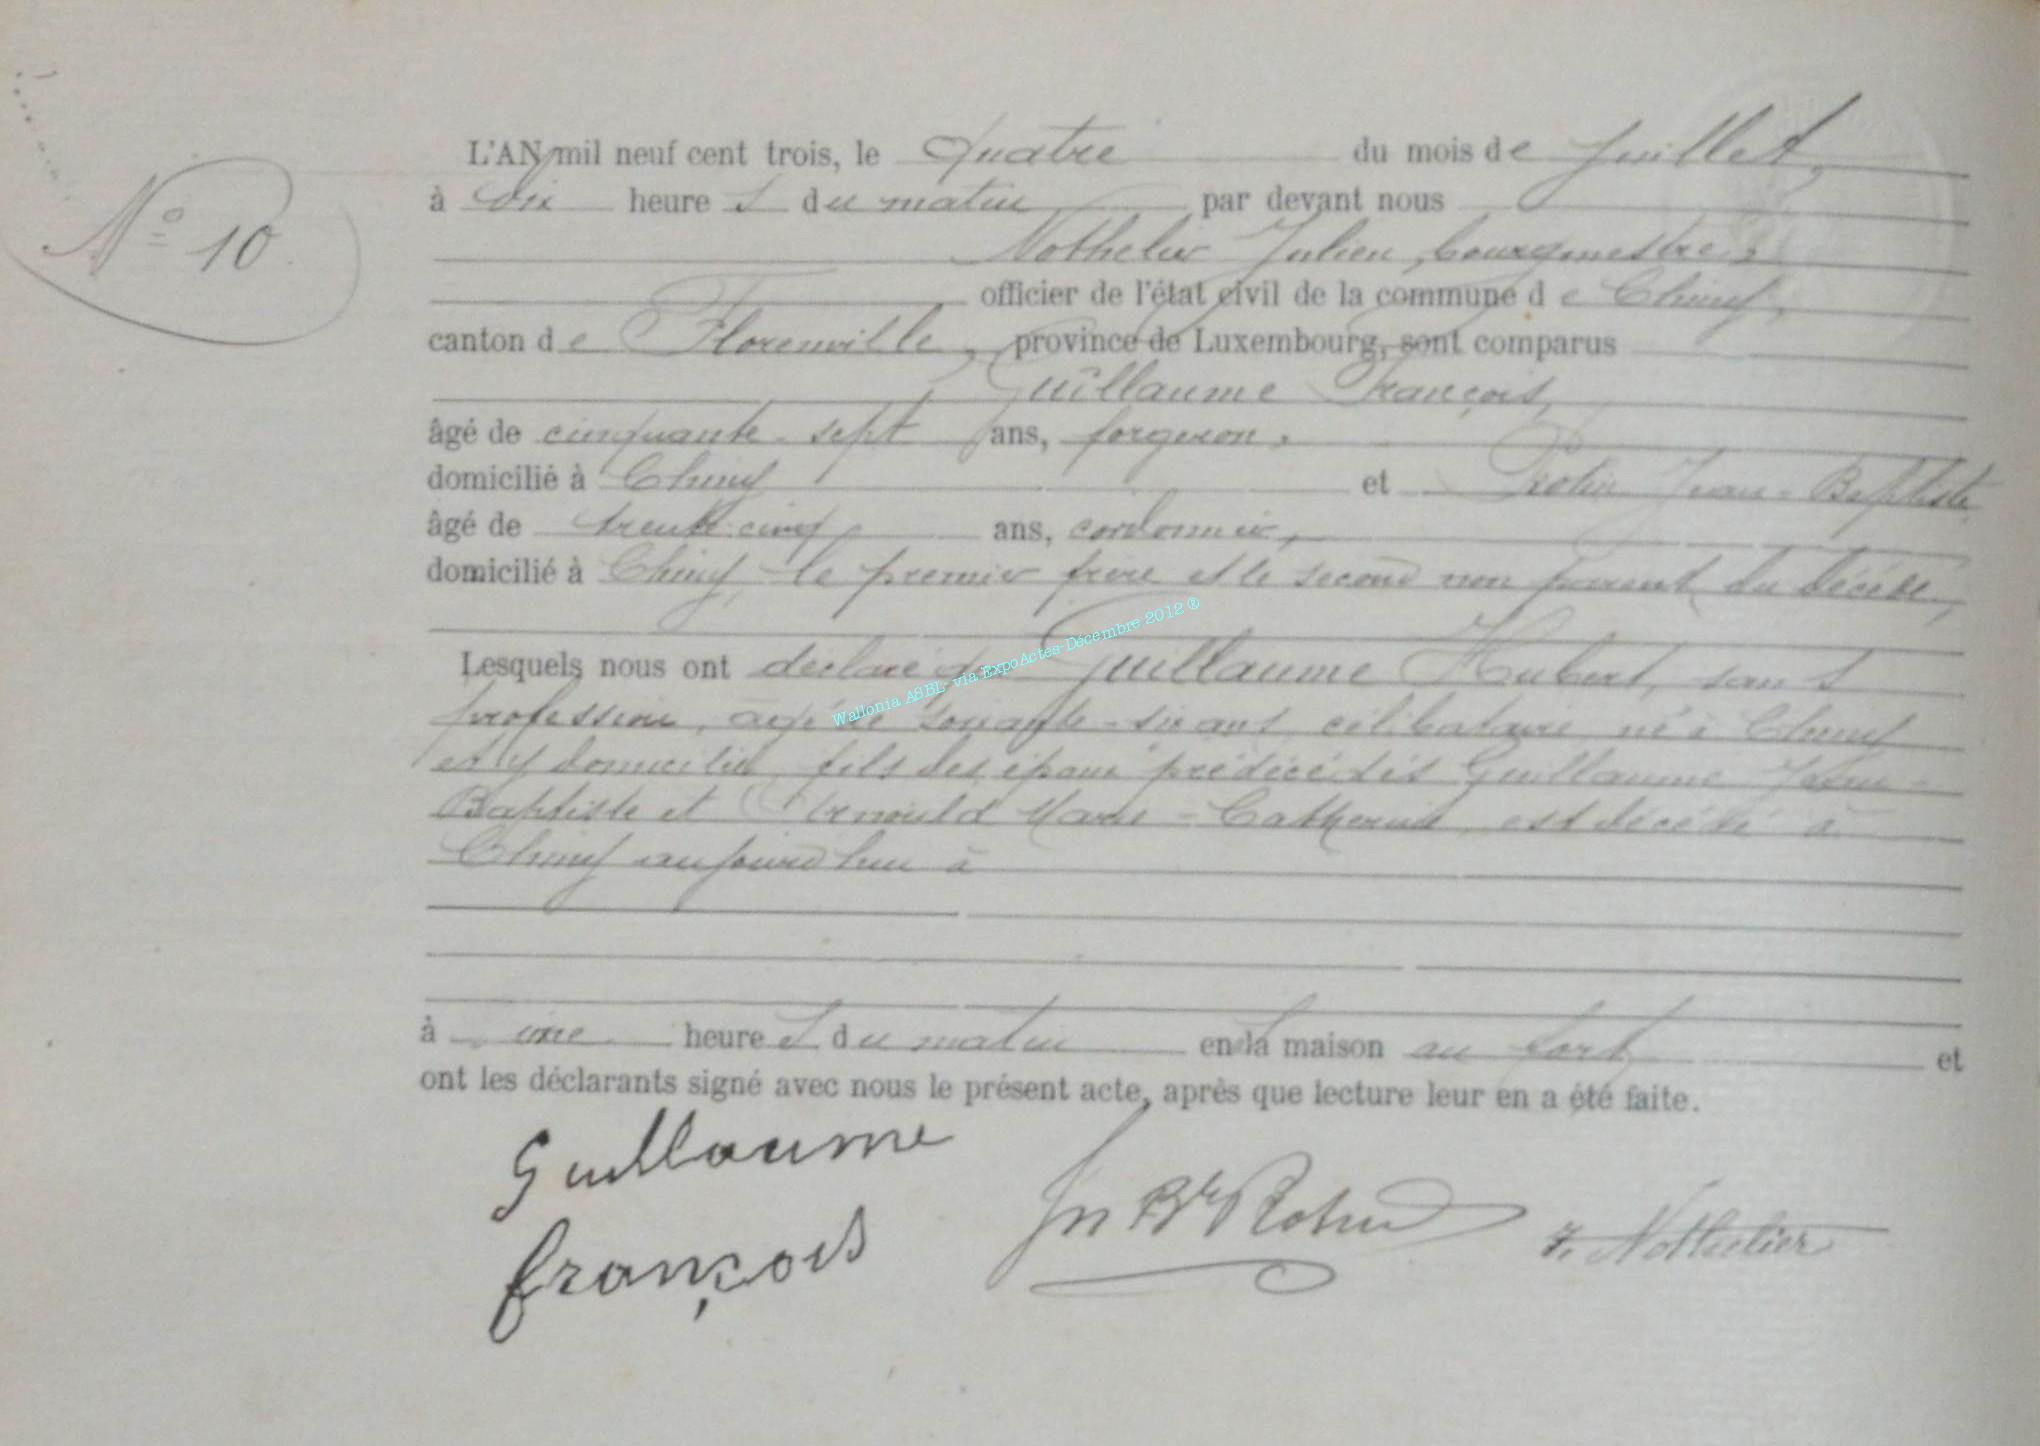 N° 10.
L'AN mil neuf cent trois, le Quatre du mois de Juillet,
à dix heure s du matin par devant nous
Nothelier Julien, bourgmestre,
officier de l'état civil de la commune d e Chiny,
canton d e Florenville, province de Luxembourg, sont comparus
Guillaume François,
âgé de cinquante-sept ans, forgeron,
domicilié à Chiny et Jean-Baptiste
âgé de trente-cinq ans, cordonnier,
domicilié à Chiny, le premier frère et le second non parent du décédé,
Lesquels nous ont déclaré que Guillaume Hubert, sans
profession, âgé de soixante-six ans, célibataire né à Chiny
et y domicilié, fils des époux prédécédés Guillaume Jean-
Baptiste et Arnould Marie-Catherine, est décédé à
Chiny aujourd'hui à
à une heure s du matin en la maison au fort et
ont les déclarants signé avec nous le présent acte, après que lecture leur en a été faite.
Guillaume
françois
Jn Bte
J. Nothelier
Wallonia ASBL- via ExpoActes-Décembre 2012 ®